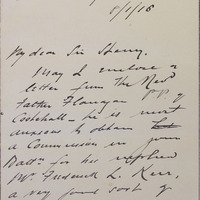 8/1/16
My dear Sir Henry.
May I enclose a
letter from the Revd
Father Flanagan P.P. of
he is most
anxious to obtain
a Commission in your
Battn for his nephew
Mr. Frederick L. Kerr,
a very good sort of